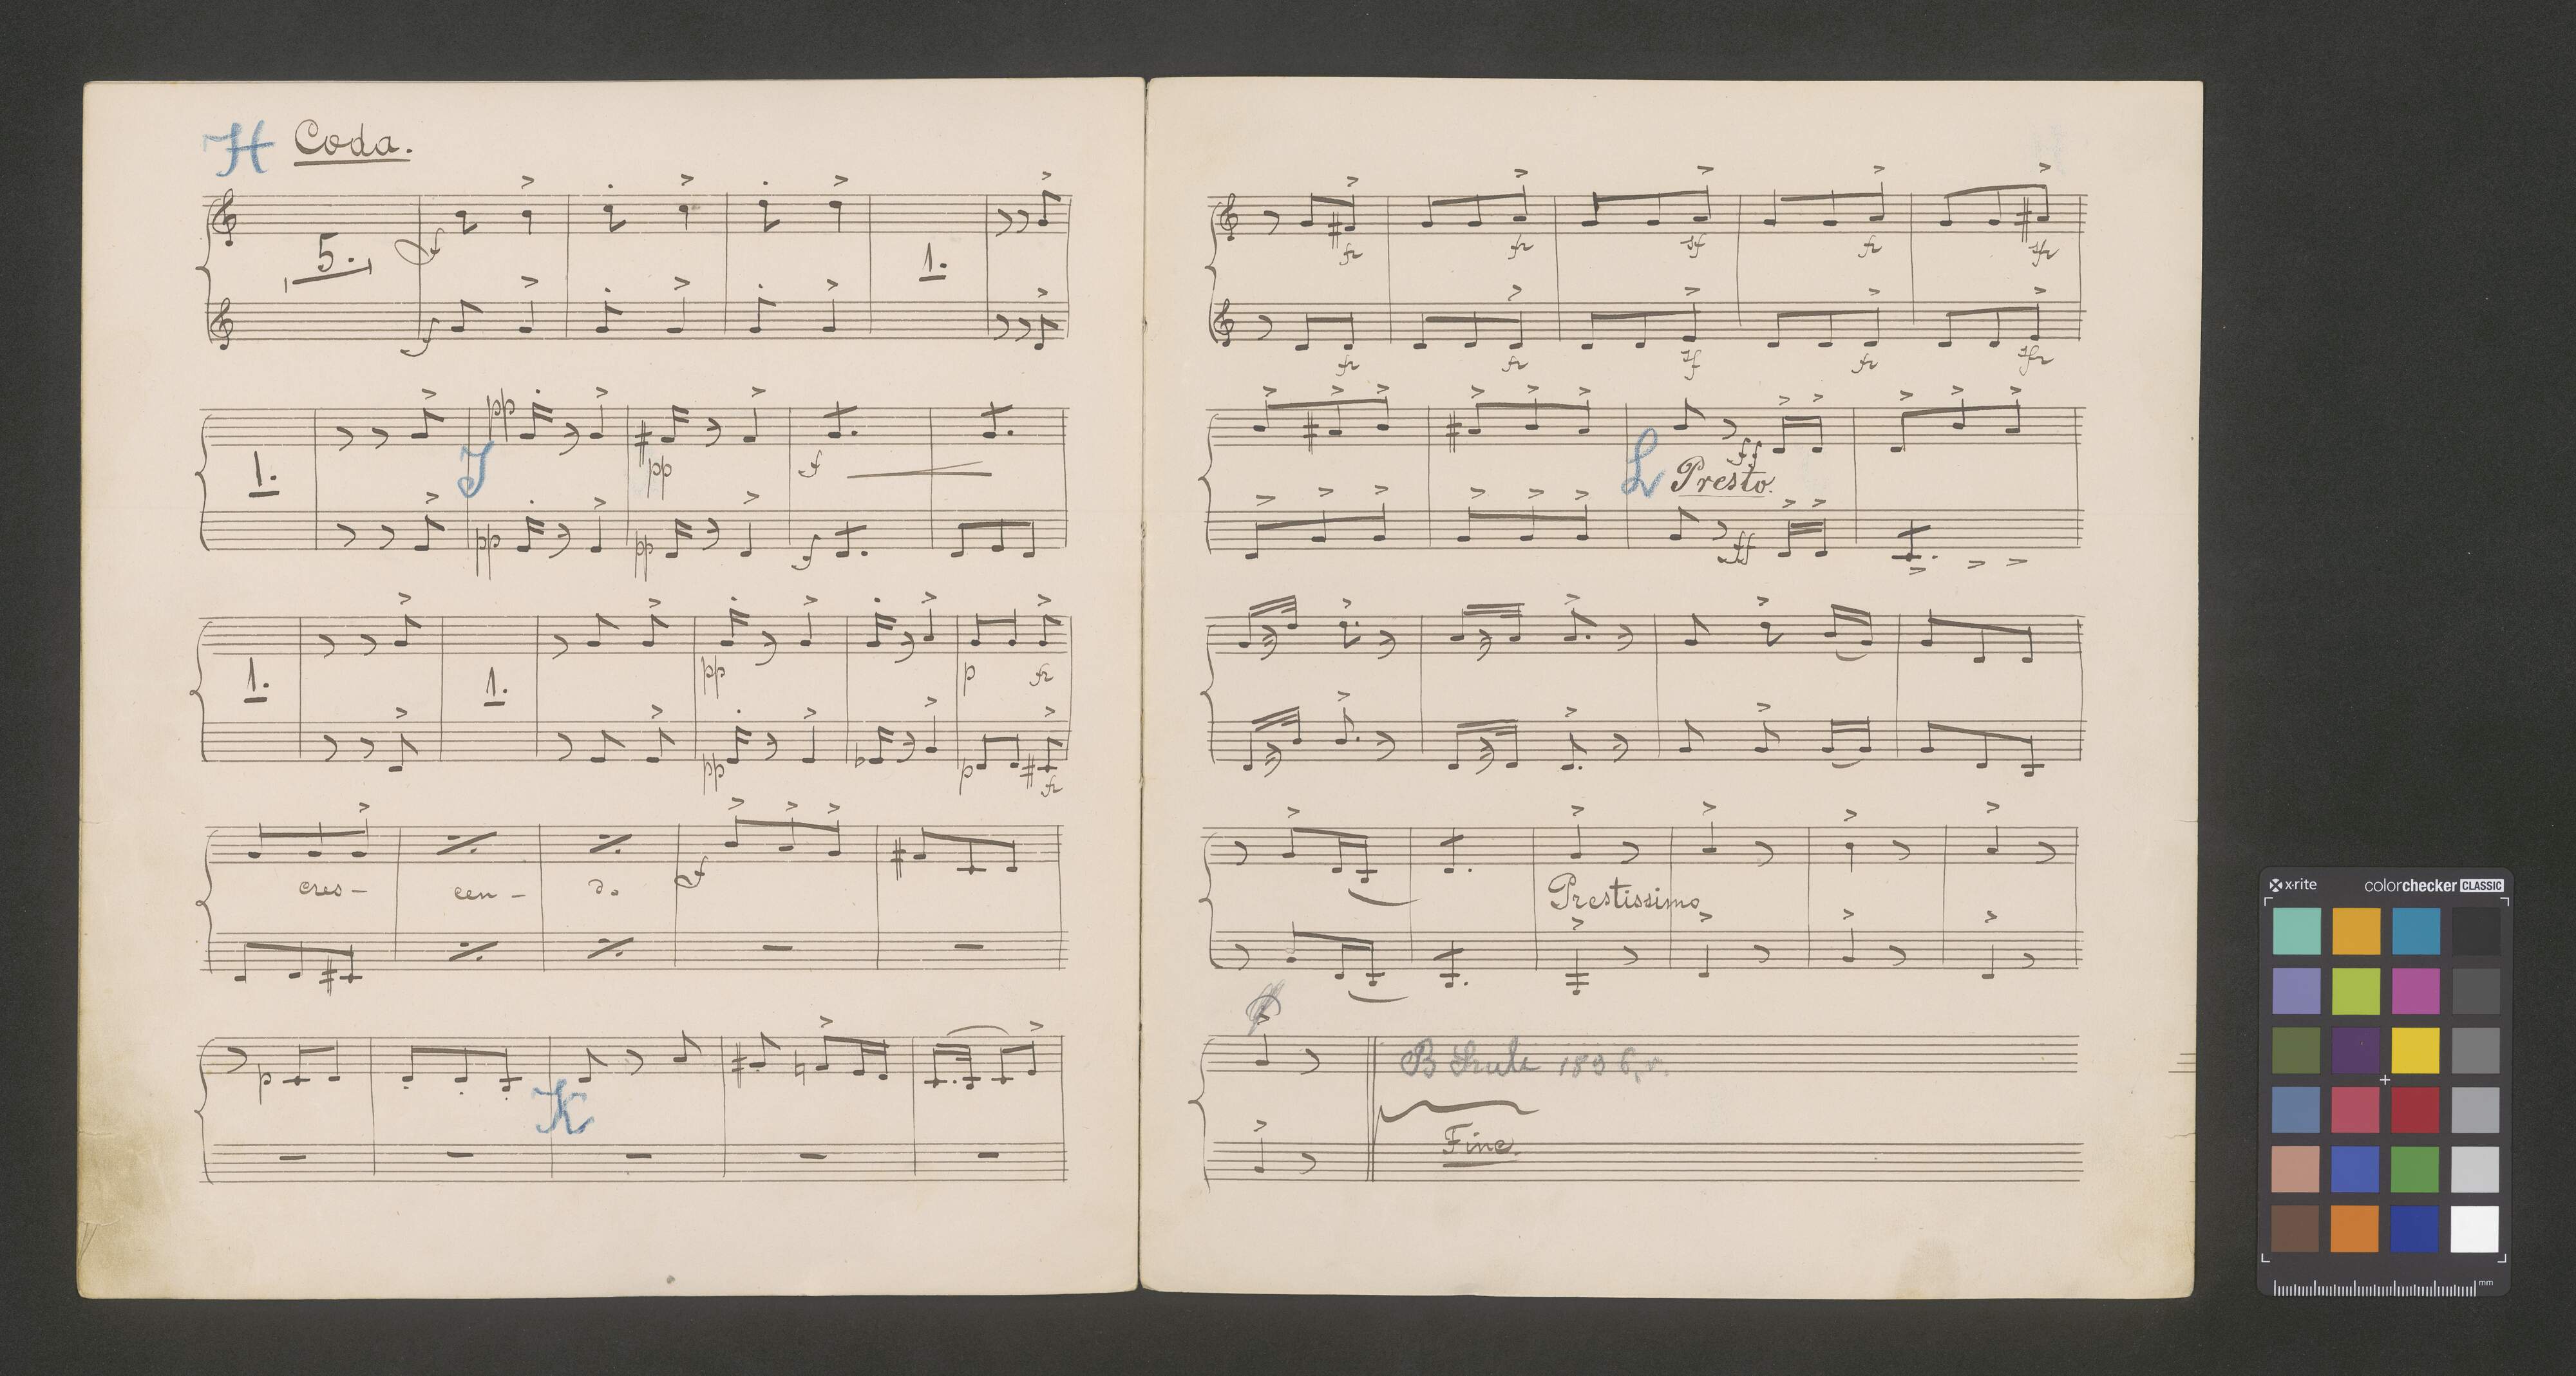 H Coda.
5. f
f
1.
pp
1. J pp f
pp pp f
1. 1. pp p fz
pp p fz
cres- cen- do f
p
K
fz fz sf fz sfz
fz fz sf fz sfz
ff
L Presto.
ff
Prestissimo
1896
Fine.
x-rite colorchecker CLASSIC
mm